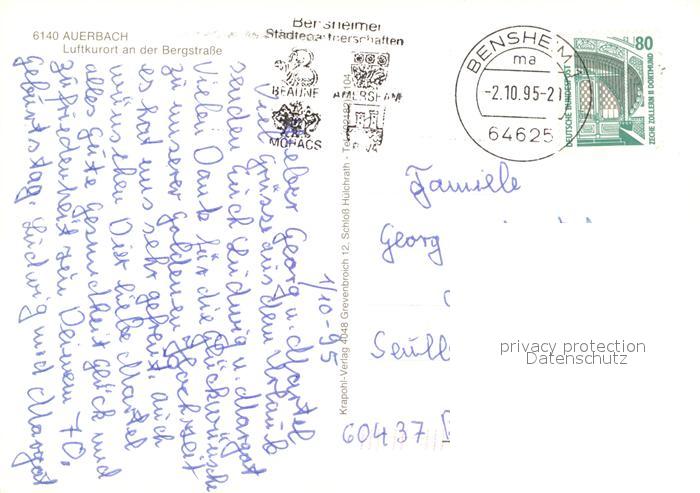 6140 AUERBACH
Luftkurort an der Bergstraße
Bensheimer
Städtepartnerschaften
BEAUNE AMERSHAM
MOHACS
BENSHEIM
ma
-2.10.95-21
64625
80
DEUTSCHE BUNDESPOST
ZECHE ZOLLERN II DORTMUND
1/10-95
Lieber Georg u. Martel
Viele Grüsse aus dem Urlaub
senden Euch Ludwig u. Margot
Vielen Dank für die Glückwünsche
zu unserer goldenen Hochzeit
es hat uns sehr gefreut, auch
wünschen Dier liebe Martel
alles gute gesundheit glück und
zufriedenheit zu Deinem 70.
Geburtstag. Ludwig und Margot
Krapohl-Verlag 4048 Grevenbroich 12, Schloß Hülchrath
Familie
Georg
60437
privacy protection
Datenschutz